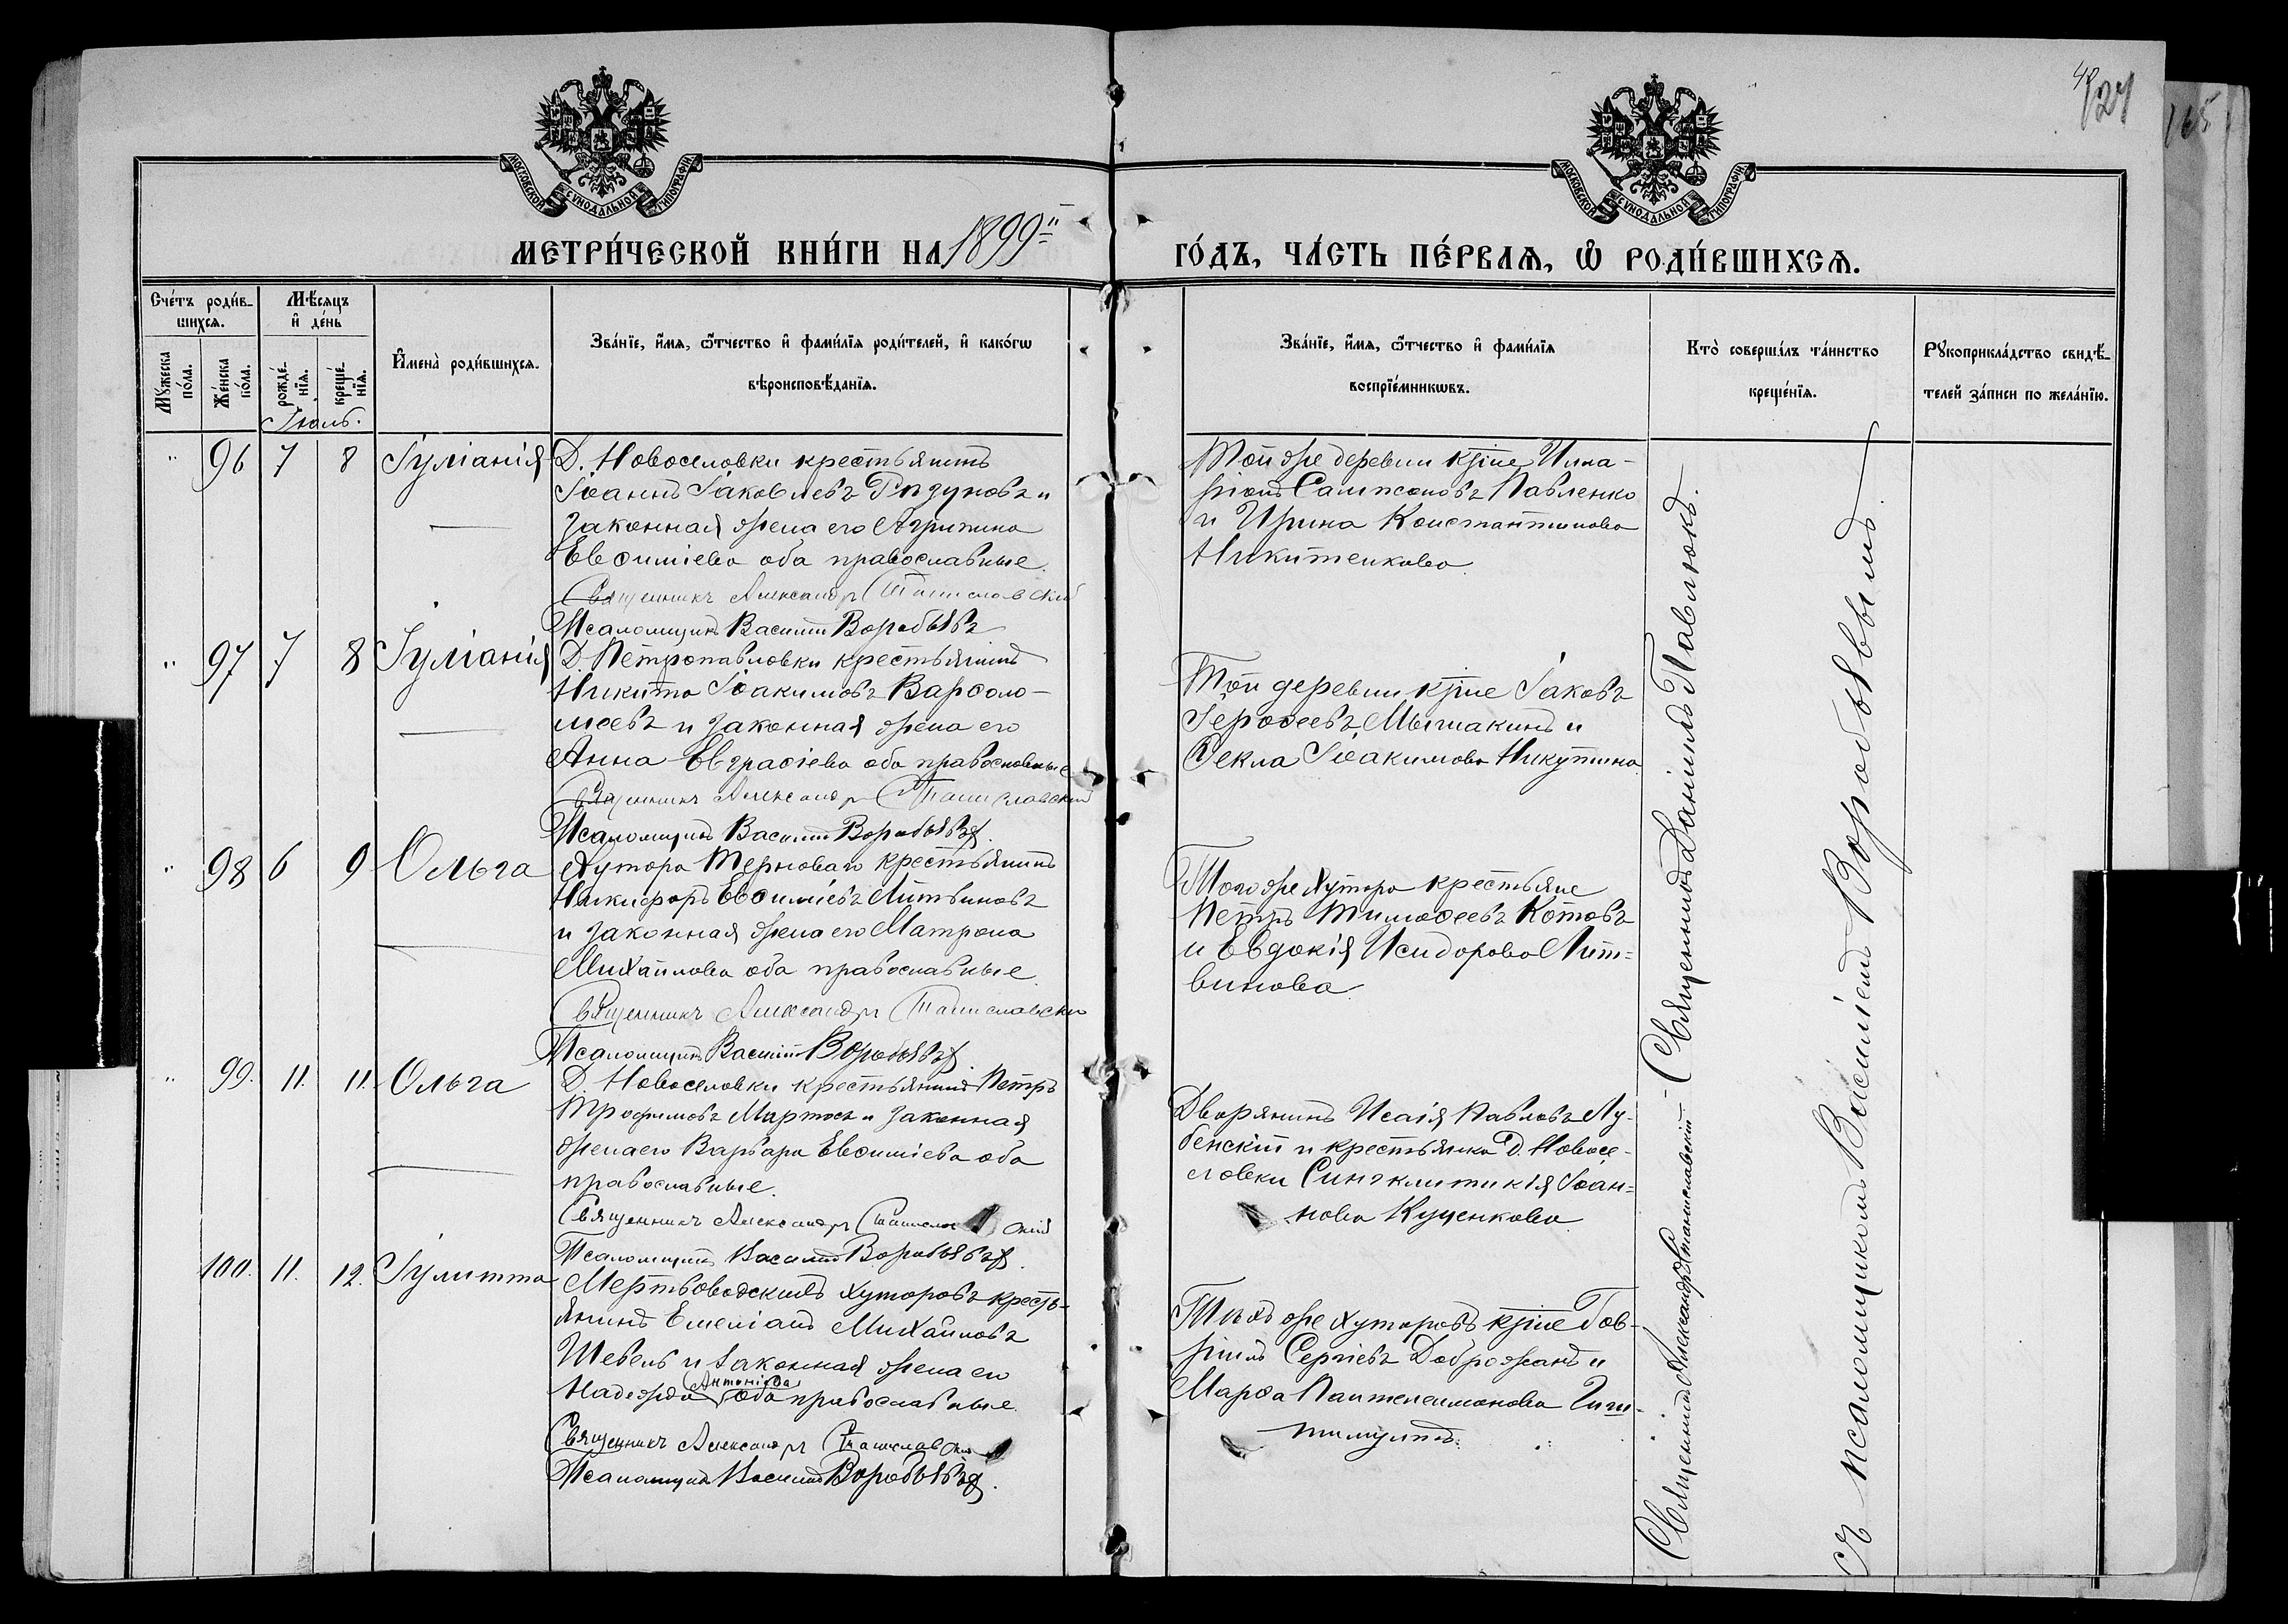 4/27
165
МОСКОВСКОЙ СУНОДАЛЬНОЙ ТИПОГРАФІИ
МОСКОВСКОЙ СУНОДАЛЬНОЙ ТИПОГРАФІИ
МЕТРИ́ЧЕСКОЙ КНИ́ГИ НА 1899й
ГО́ДЪ, ЧА́СТЬ ПЕ́РВАѦ, Ѡ҆ РОДИ́ВШИХСѦ.
Сче́тъ роди́в-
шихсѧ.
Мꙋ́жеска
по́ла.
Же́нска
по́ла.
Мѣ́сѧцъ
и҆ де́нь
рожде́-
нїѧ.
креще́-
нїѧ.
И҆мена̀ роди́вшихсѧ.
Зва́нїе, и҆́мѧ, ѻ҆́тчество и҆ фами́лїѧ роди́телей, и҆ како́гѡ
вѣроисповѣ́данїѧ.
Зва́нїе, и҆́мѧ, ѻ҆́тчество и҆ фами́лїѧ
воспрїе́мникѡвъ.
Кто̀ соверша́лъ та́инство
креще́нїѧ.
Рꙋкоприкла́дство свидѣ́-
телей за́писи по жела́нїю.
Іюль.
" 96 7 8 Іуліанія
Д. Новоселовки крестьянинъ
Іоаннъ Іаковлевъ и
законная жена его Агрипина
Евѳиміева оба православные.
Священникъ Александръ Станиславскій
Псаломщикъ Василій Воробьевъ
Той же деревни кр-не Илла-
ріонъ Сампсоновъ Павленко
и Ирина Константинова
Никитенкова.
" 97 7 8 Іуліанія
Д. Петропавловки крестьянинъ
Никита Іоакимовъ Варѳоло-
меевъ и законная жена его
Анна Евграфіева оба православные
Священникъ Александръ Станиславскій
Псаломщикъ Василій Воробьевъ.
Той деревни кр-не Іаковъ
Іероѳеевъ Мышакинъ и
Ѳекла Іоакимова Никутина.
" 98 6 9 Ольга
Хутора Терноваго крестьянинъ
Никифоръ Евѳиміевъ Литвиновъ
и законная жена его Матрона
Михайлова оба православные.
Священникъ Александръ Станиславскій
Псаломщикъ Василій Воробьевъ.
Того же хутора крестьяне
Петръ Тимоѳеевъ Котовъ
и Евдокія Исидорова Лит-
винова.
" 99. 11. 11. Ольга
Д. Новоселовки крестьянинъ Петръ
Трофимовъ Мартосъ и законная
жена его Варвара Евѳиміева оба
православные.
Священникъ Александръ Станиславскій
Псаломщикъ Василій Воробьевъ.
Дворянинъ Исаія Павловъ Лу-
бенскій и крестьянка д. Новосе-
ловки Синклитикія Іоан-
нова Куценкова
100. 11. 12. Іулитта
Мертвоводскихъ хуторовъ кресть-
янинъ Емеліанъ Михайловъ
Шевель и законная жена его
Антоніева
Надежда оба православные.
Священникъ Александръ Станиславскій
Псаломщикъ Василій Воробьевъ.
Тѣхъ же хуторовъ кр-не Гав-
ріилъ Сергіевъ Доброжанъ и
Марѳа Пантелеимонова
Священникъ Александръ Станиславскій - Священникъ Даніилъ Павлюкъ.
съ псаломщикомъ Василіемъ Воробьевымъ.